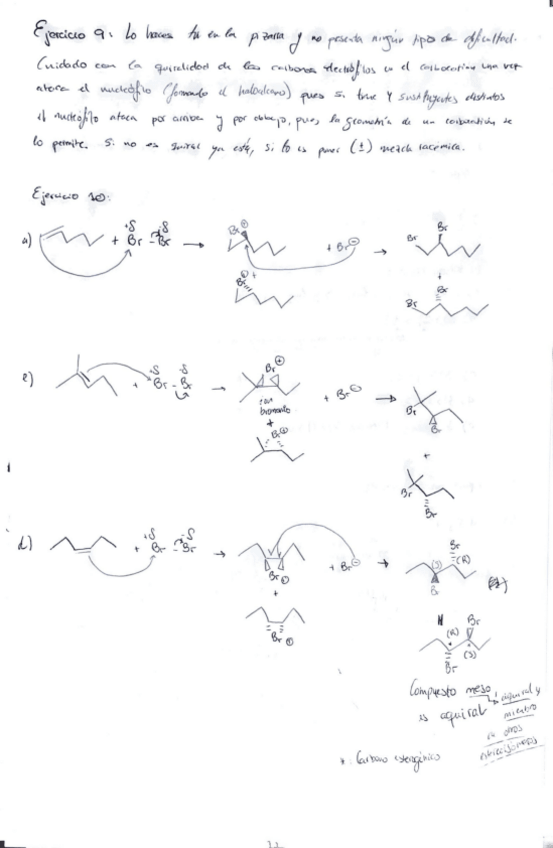 Ejercicio 9: Lo hacemos tú en la pizarra y no presenta ningún tipo de dificultad.
Cuidado con la quiralidad de los carbonos electrófilos en el carbocatión una vez
ataca el nucleófilo (formando el haloalcano) pues si tiene 4 sustituyentes distintos
el nucleófilo ataca por arriba y por debajo, pues la geometría de un carbocatión se
lo permite. Si no es quiral ya está, si lo es pones (±) mezcla racémica.
Ejercicio 10:
a) + +δ Br - Br -δ → Br ⊕ + Br ⊖ → Br Br
+ Br ⊕ + Br Br
e) + +δ Br - Br δ → Br ⊕ + Br ⊖ → Br Br
ion
bromonio
+ Br ⊕ + Br Br
d) + +δ Br - Br -δ → Br ⊕ + Br ⊖ → (S) Br (R) Br
+ Br ⊕ (R) Br (S) Br
Compuesto meso
es aquiral
aquiral y
mientras
otros
estereoisómeros
* Carbono estereogénico